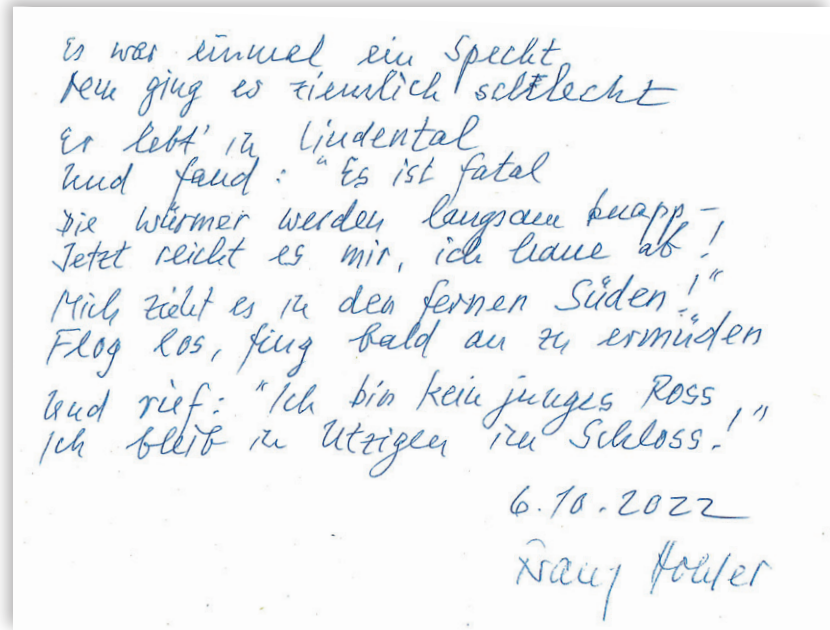 Es war einmal ein Specht
Dem ging es ziemlich schlecht
Er lebt' in Lindental
Und fand: "Es ist fatal
Die Würmer werden langsam knapp –
Jetzt reicht es mir, ich haue ab!
Mich zieht es in den fernen Süden!"
Flog los, fing bald an zu ermüden
Und rief: "Ich bin kein junges Ross
Ich bleib in Utzigen im Schloss!"
6.10.2022
Franz Hohler